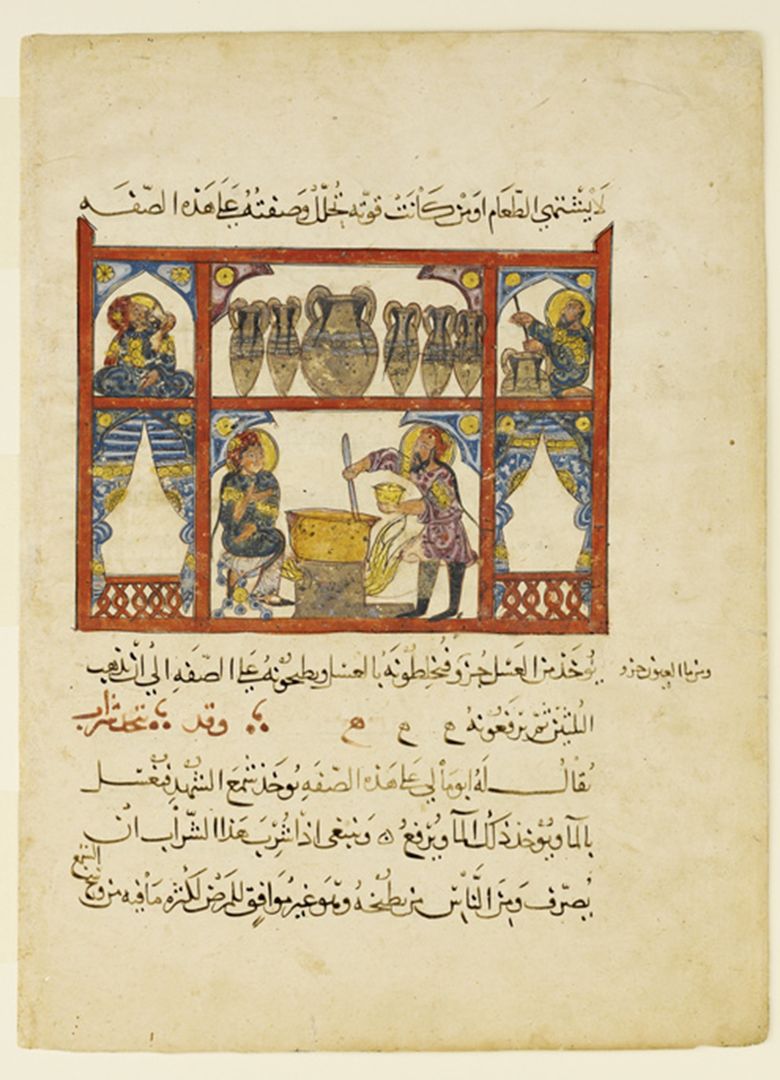 لا يشتهي الطعام او من كانت قوته تحلل وصفته على هذه الصفه
يوخذ من العسل جزو فيخلطونه بالعسل ويطبخونه على الصفه الى ان يذهب
ومن ما العيون جزو
الثلثين ثم يرفعونه وقد يتخذ شراب
يقال له ابومالي على هذه الصفه يوخذ شمع الشهد فيغسل
بالما ويوخذ ذلك الما ويرفع وينبغي اذا شرب هذا الشراب ان
يصرف ومن الناس من يطبخه وهو غير موافق للمرض لكثره ما فيه من وسخ
الشمع